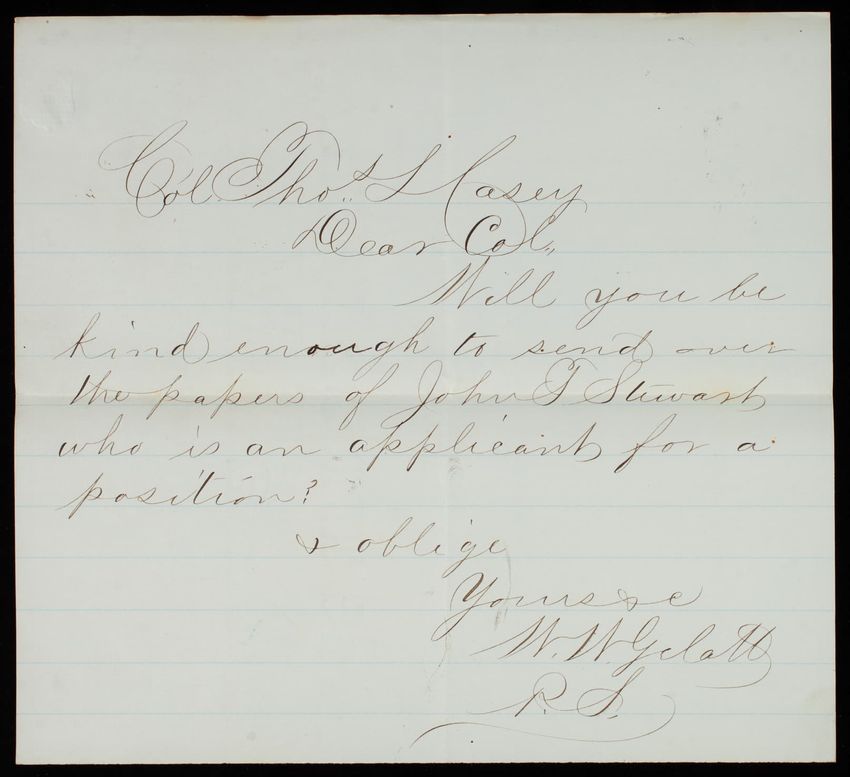 Col. Thos. L Casey
Dear Col.,
Will you be
kind enough to send over
the papers of John T Stewart
who is an applicant for a
position?
& oblige
Yours &c
W. W. Gelatt
P. S.